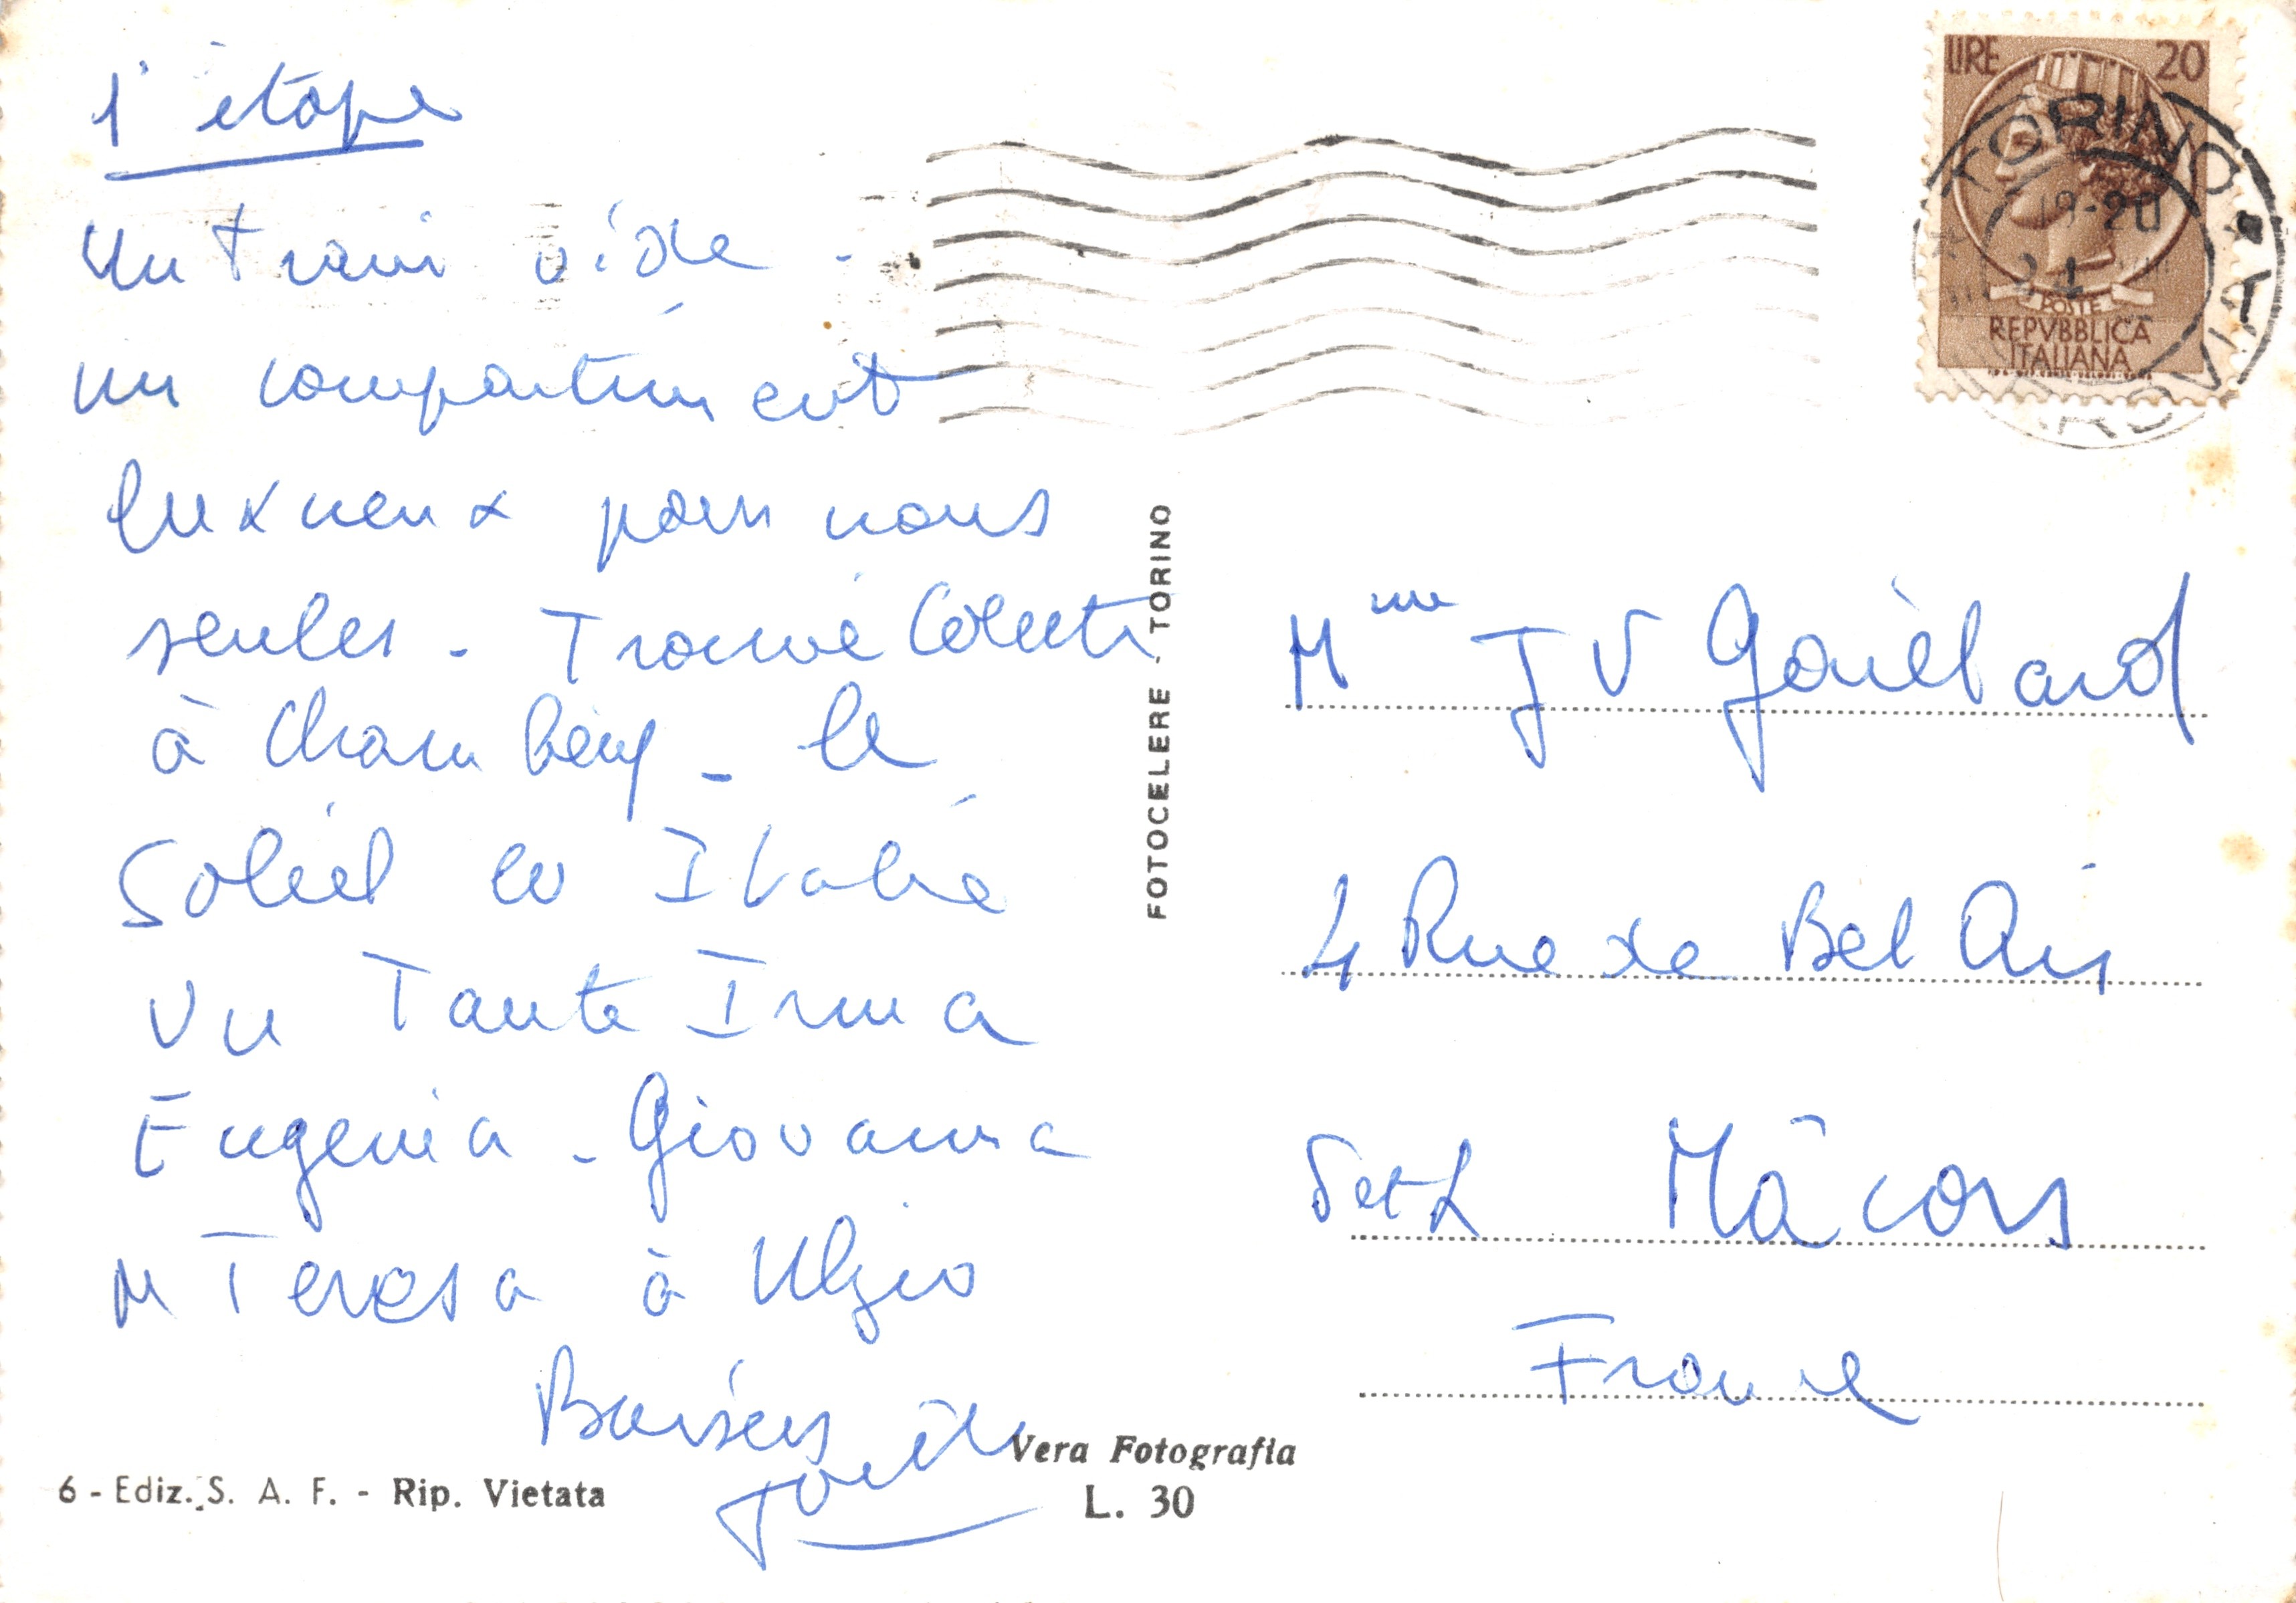 1° étape
Un train vide -
un compartiment
luxueux pour nous
seules - Trouvé Colette
à Chambéry - le
Soleil en Italie
Vu Tante Irma
Eugenia - Giovanna
M Teresa à Ulzio
Baisers
6 - Ediz. S. A. F. - Rip. Vietata
Vera Fotografia
L. 30
FOTOCELERE - TORINO
LIRE 20
POSTE
REPVBBLICA
ITALIANA
TORINO
19-20
Mme J V Gouëbard
4 Rue de Bel Air
S et L Mâcon
France